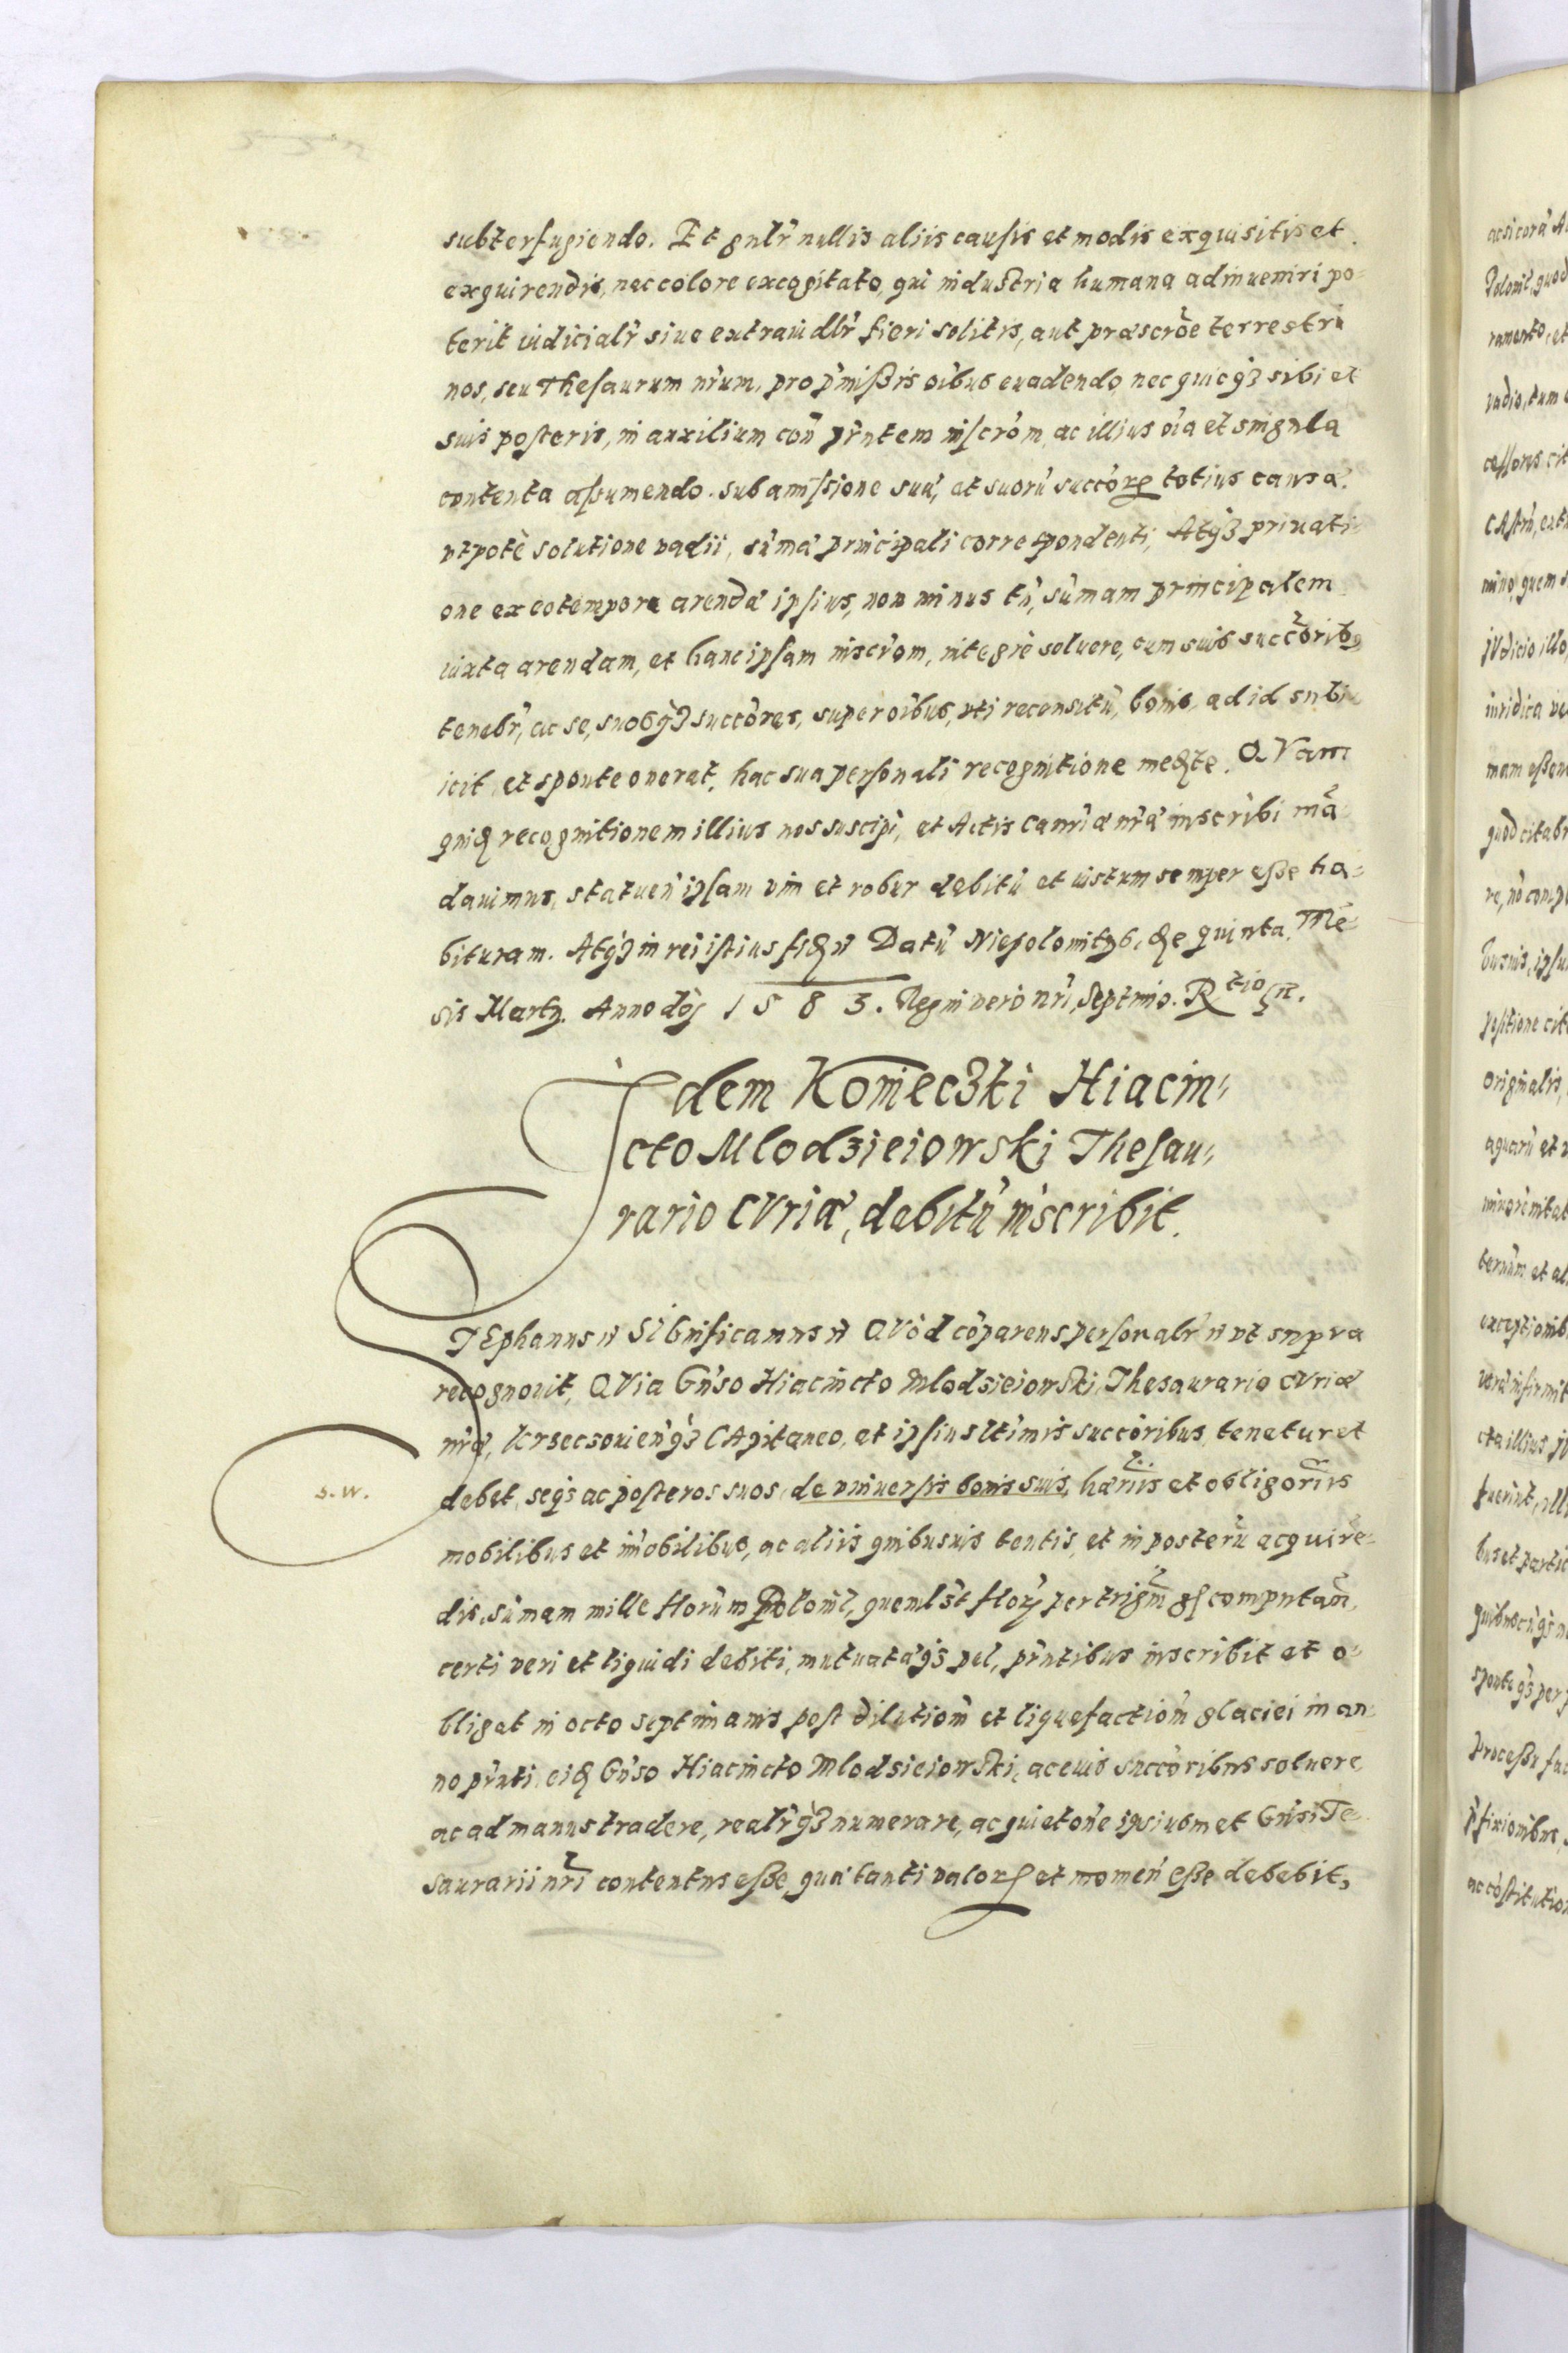 subterfugiendo. Et gnlr̃ nullis aliis causis et modis exquisitis et
exquirendis, nec colore excogitato, qui industria humana adinueniri po-
terit iudicialr̃ siue extraiudlr̃ fieri solitis, aut præscrõe terrestri
nos, seu Thesaurum nr̃um, pro p̃missis oĩbus euadendo, nec quicq3 sibi et
suis posteris, in auxilium con̄ pr̃ntem inscrõm, ac illius oĩa et singula
contenta assumendo. sub amissione suũ, et suorũ succõrꝫ totius causæ.
vtpotè solutione vadii, sũmæ principali correspondenti, Atq3 priuati-
one ex eo tempore arendæ ipsius, non minus tñ, sũmam principalem
iuxta arendam, et hanc ipsam inscrõm, integrè soluere, cum suis succõrib9
tenebr̃, ac se, suosq3 succõres, super oĩbus, vti recensitũ, bonis, ad id subi-
icit, et sponte onerat, hac sua personali recognitione med̃te. QVam
quid̃ recognitionem illius nos suscipi, et Actis Canr̃iæ nr̃æ inscribi mã-
dauimus, statueñ ipsam vim et robur debitũ et iustum semper esse ha-
bituram. Atq3 in rei istius fid̃ ñ Datũ Niepolomityb. die quinta. Mẽ-
sis Martÿ. Anno dñj 1583. Regni vero nr̃i, Septimo. Rtio ſn.
Idem KonieczKi Hiacin-
cto Mlodzieiowski Thesau-
rario CVriæ, debitũ inscribit.
STEphanus ñ SIGnificamus ñ QVòd cõparens personalr̃ ñ vt supra
recognouit, QVia Gñso Hiacincto Mlodsieiowski, Thesaurario CVriæ
nr̃æ, Krsecsouieñq3 CApitaneo, et ipsius ltĩmis succõribus, tenetur et
debet, seq3 ac posteros suos, de vniuersis bonis suis, hær̃iis et obligor̃iis
s. w.
mobilibus et im̃obilibus, ac aliis quibusuis tentis, et in posterũ acquirẽ-
dis, sũmam mille florũm Polonil, quemlt flor̃ per trig̃m gſ computañ,
certi veri et liquidi debiti, mutuatæq3 pel, pr̃ntibus inscribit et o-
bligat in octo septimanis post dilutiom̃ et liquefactiom̃ glaciei in an-
no pr̃nti, eid̃ Gñso Hiacincto Mlodsieiowski, ac euis succõribus soluere
ac ad manus tradere, realr̃q3 numerare, ac quietõne ipsiusmet Gñsi Te-
saurarii nr̃i contentus esse, quæ tanti valorꝫ et momeñ esse debebit,